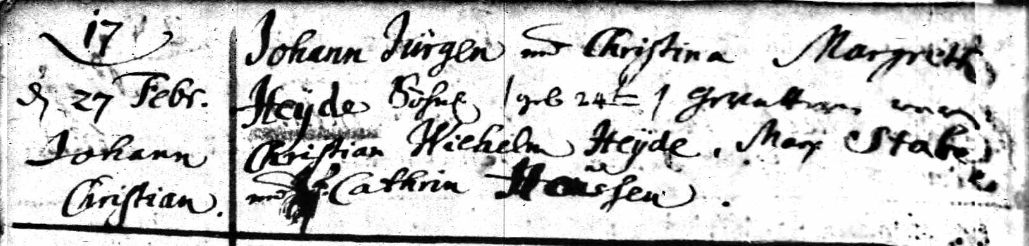 17
d 27 Febr.
Johann
Christian.
Johann Jürgen und Christina Margreth
Heÿde Söhnl. / geb 24t / Gevattern waren
Christian Wilhelm Heÿde. Marg Stabe
und Cathrin Henssen.